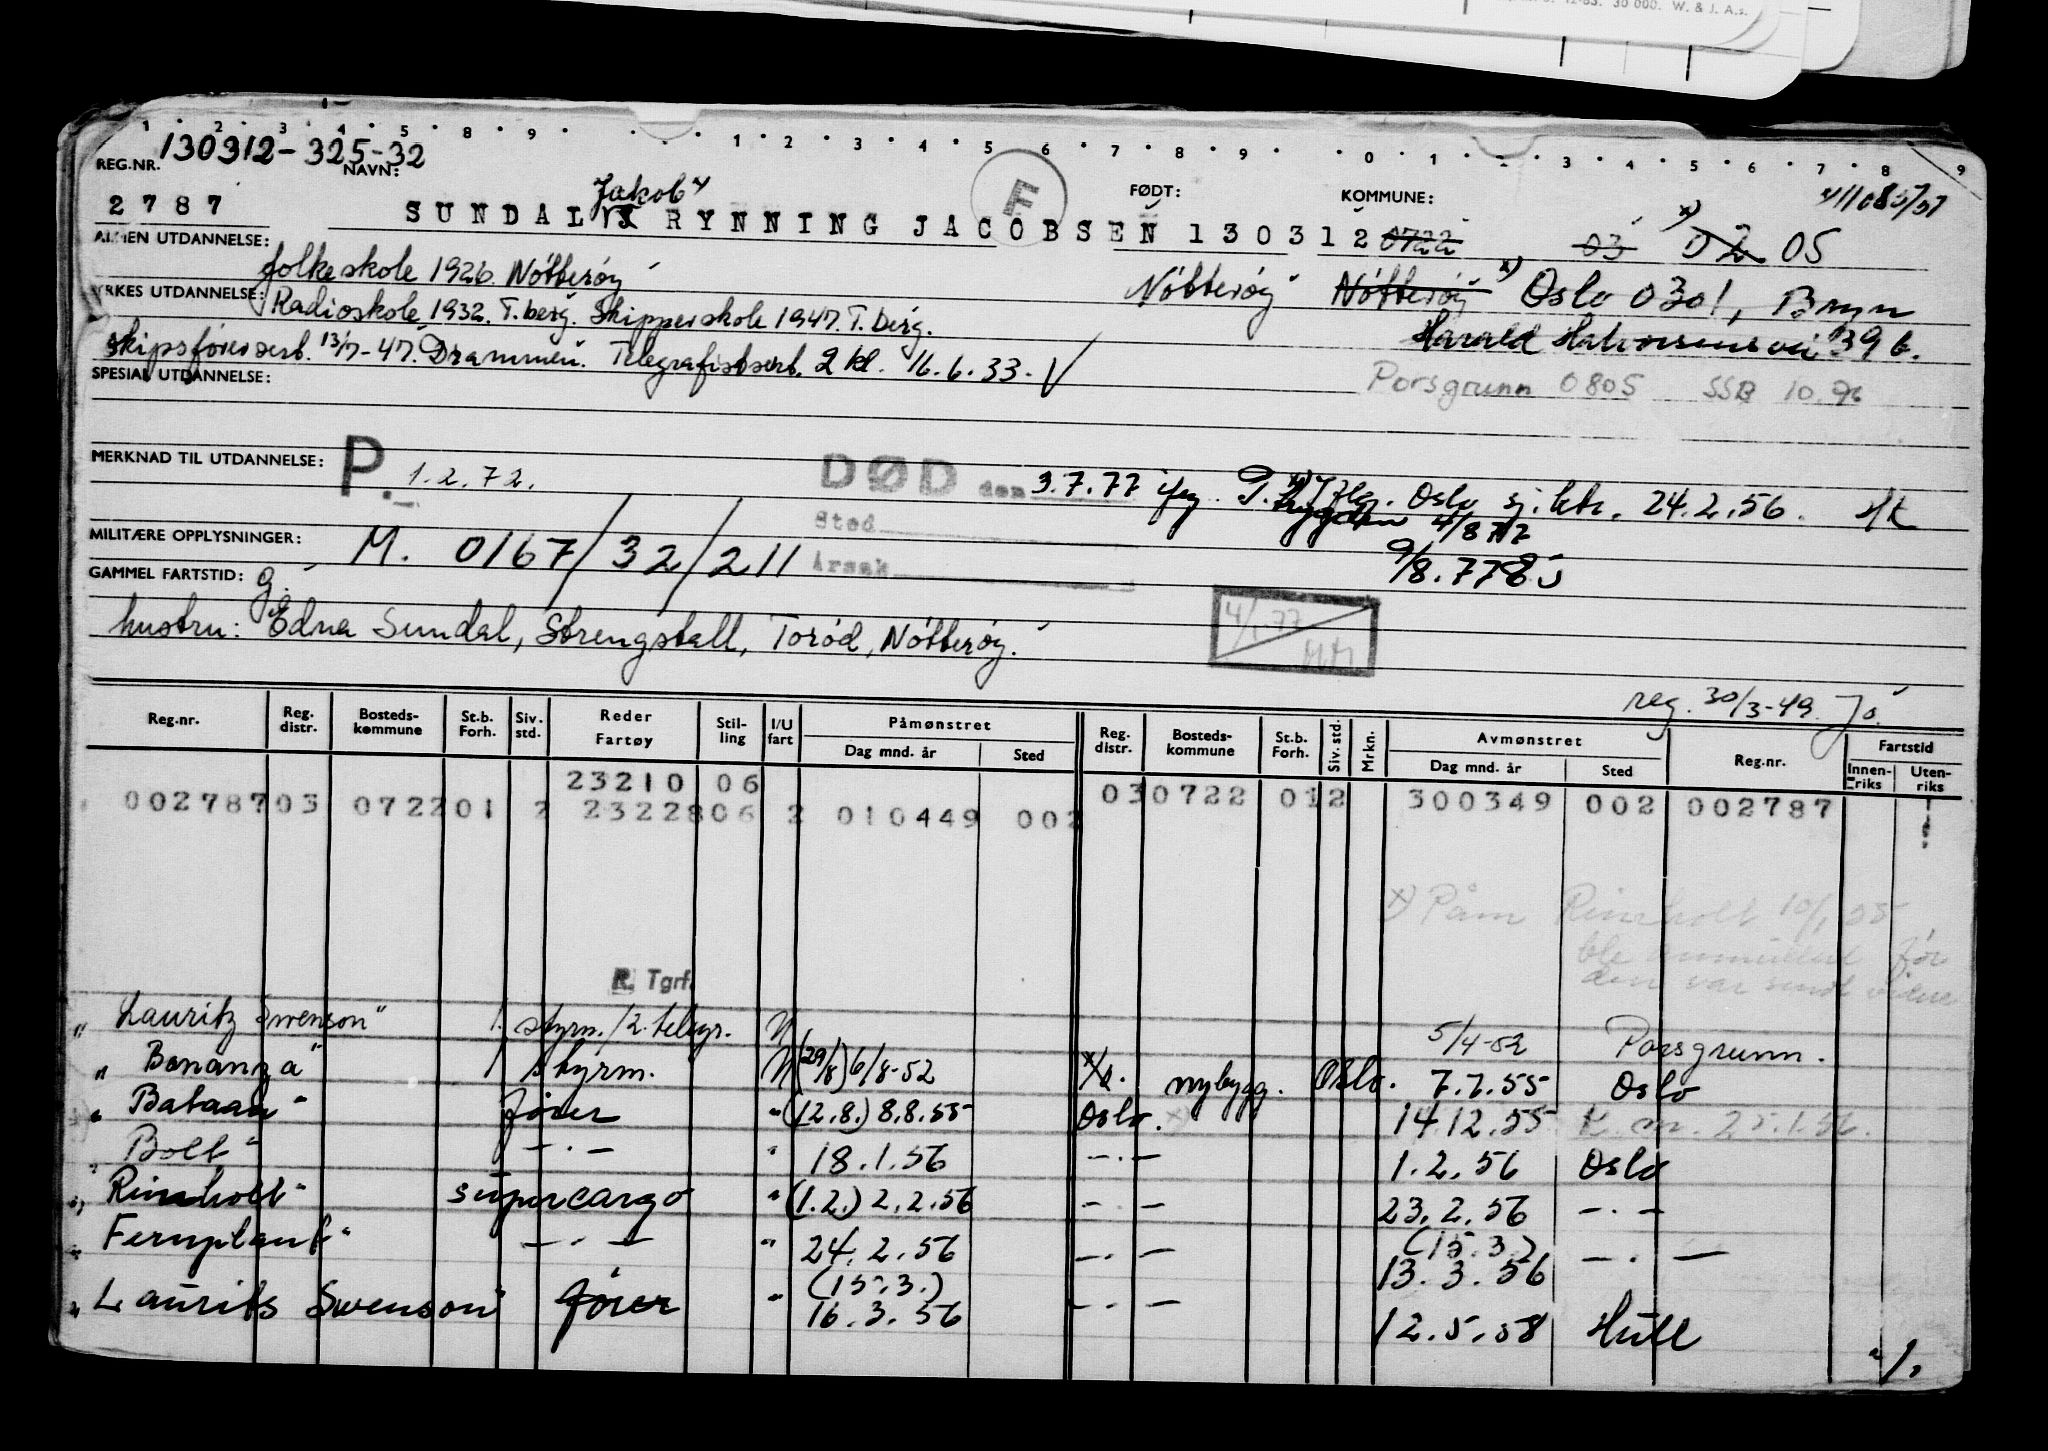 12-63. 30 000. W. & J. A.s.
1 2 3 4 5 8 9 1 2 3 4 5 6 7 8 9 0 1 3 4 5 6 7 8 9
130912-325-32
REG.NR. NAVN: FØDT: KOMMUNE:
Jakob x) F 411085/57
2787 SUNDAL RYNNING JACOBSEN 130312 0722 03 x) 02 05
ALMEN UTDANNELSE: folkeskole 1926. Nøtterøy
Nøtterøy Nøtterøy x) Oslo 0301, Bryn
YRKES UTDANNELSE: Radioskole 1932. T.berg. Skipperskole 1947. T.berg.
Harald Halvorsens vei 39 b.
skipsførersert. 13/7-47. Drammen. Telegrafistsert. 2 kl. 16.6.33. V
Porsgrunn 0805 SSB 10.96
SPESIAL UTDANNELSE:
MERKNAD TIL UTDANNELSE: P. 1.2.72.
DØD den 3.7.77 ifg. T. trygden 4/8 77
x) Iflg. Oslo sj.ktr. 24.2.56.
Sted
9/8.77
MILITÆRE OPPLYSNINGER: M. 0167/32/211
Årsak
GAMMEL FARTSTID: g.
4/1.77
hustru: Edna Sundal, Strengstall, Torød, Nøtterøy.
reg. 30/3-49. Jo.
Reg.nr. Reg. distr. Bosteds-kommune St.b. Forh. Siv. std. Reder Fartøy Stil-ling I/U fart Påmønstret Dag mnd. år Sted Reg. distr. Bosteds-kommune St.b. Forh. Siv. std. Mrkn. Avmønstret Dag mnd. år Sted Reg.nr. Fartstid Innen-riks Uten-riks
23210 06
002787 03 0722 01 2 23228 06 2 010449 002 03 0722 01 2 300349 002 002787
x) Påm Rinholt 10/1 55
ble annullert før
den var sendt videre
R. Tgrf.
" Lauritz Swenson" 1. styrm./2. telegr. U 5/4-52 Porsgrunn.
" Bonanza" 1 styrm. U (29/8) 6/8-52 nybygg. Oslo. 7.7.55 Oslo
" Bataan" fører " (12.8.) 8.8.55 Oslo. x) 14.12.55 K. m. 25.1.56.
" Bolt" —.— " 18.1.56 —.— 1.2.56 Oslo
" Rinholt" supercargo " (1.2.) 2.2.56 —.— 23.2.56 —.—
" Fernplant" —.— " 24.2.56 —.— (15.3.) 13.3.56 —.—
" Laurits Swenson" fører " (15.3.) 16.3.56 —.— 12.5.58 Hull